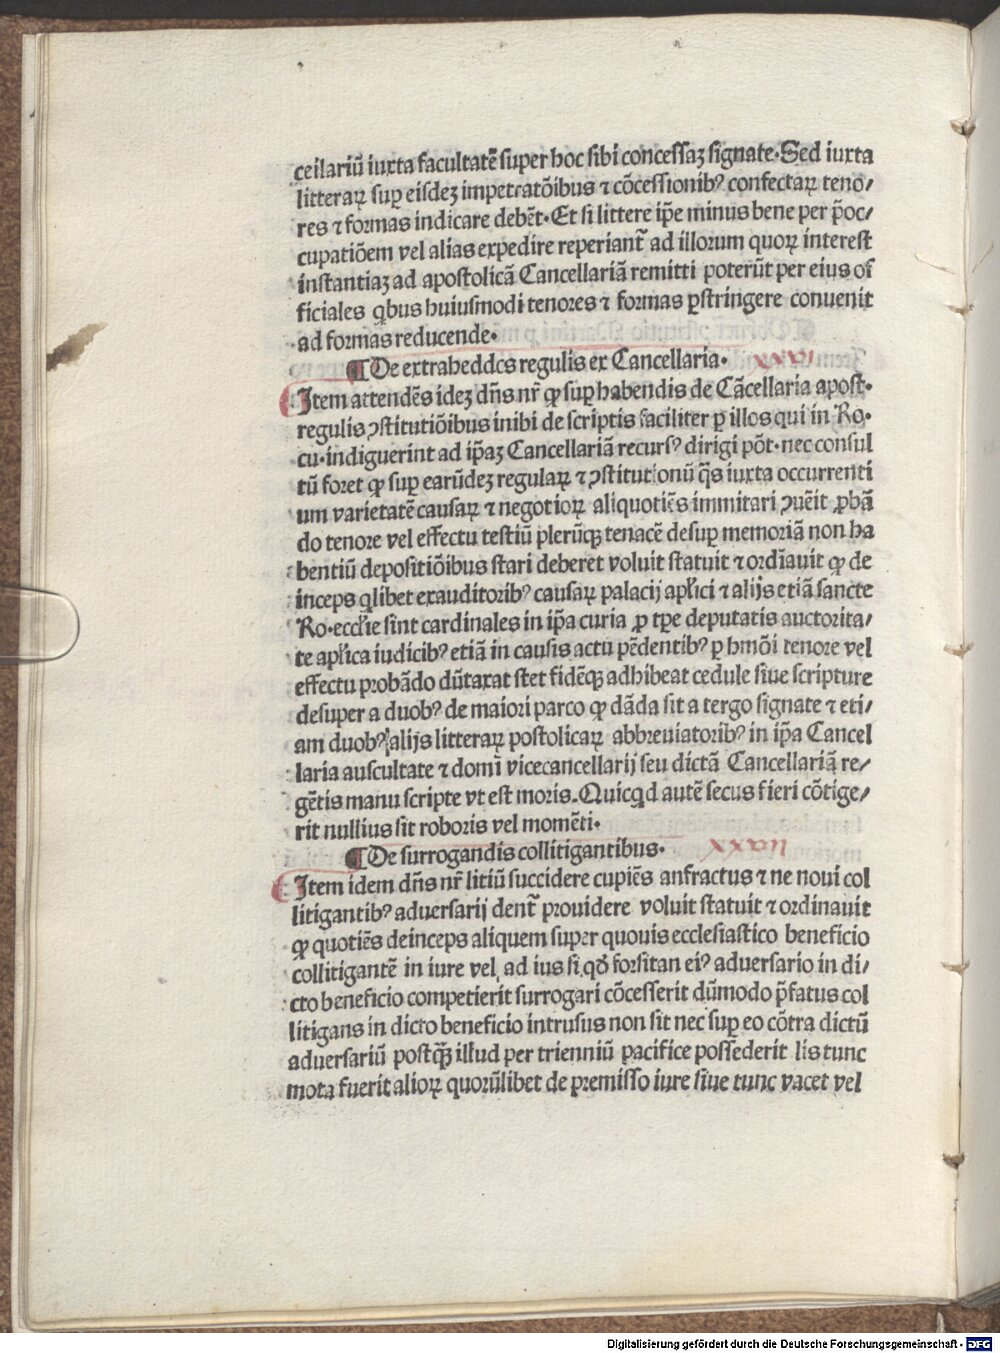 cellariū iuxta facultatē super hoc sibi concessaꝫ signate. Sed iuxta
litteraꝝ suꝑ eisdeꝫ impetratōibus ⁊ cōcessionibꝰ confectaꝝ teno/
res ⁊ formas indicare debēt. Et si littere ip̄e minus bene per p̄oc/
cupatiōem vel alias expedire reperiant̄ ad illorum quoꝝ interest
instantiaꝫ ad apostolicā Cancellariā remitti poterūt per eius of
ficiales qͥbus huiusmodi tenores ⁊ formas ꝑstringere conuenit
ad formas reducende.
¶ De extrahēdcs regulis ex Cancellaria. xxvi
Item attendēs ideꝫ dn̄s nr̄ ꝙ suꝑ habendis de Cācellaria apost.
regulis ↄstitutiōibus inibi de scriptis faciliter ꝑ illos qui in Ro.
cu. indiguerint ad ip̄aꝫ Cancellariā recursꝰ dirigi pōt. nec consul
tū foret ꝙ suꝑ earūdeꝫ regulaꝝ ⁊ ↄstitutionū q̄s iuxta occurrenti
um varietatē causaꝝ ⁊ negotioꝝ aliquotiēs immitari ↄuēit ꝓbā
do tenore vel effectu testiū plerūqꝫ tenacē desuꝑ memoriā non ha
bentiū depositiōibus stari deberet voluit statuit ⁊ ordīauit ꝙ de
inceps qͥlibet ex auditoribꝰ causaꝝ palacij apl̓ici ⁊ alijs etiā sancte
Ro. eccl̓ie sint cardinales in ip̄a curia ꝓ tꝑe deputatis auctorita/
te apl̓ica iudicibꝰ etiā in causis actu pēdentibꝰ ꝑ hmōi tenore vel
effectu probādo dūtaxat stet fidēqꝫ adhibeat cedule siue scripture
desuper a duobꝰ de maiori parco ꝙ dāda sit a tergo signate ⁊ eti/
am duobꝰ alijs litteraꝝ postolicaꝝ abbreuiatoribꝰ in ip̄a Cancel
laria auscultate ⁊ domī vicecancellarij seu dictā Cancellariā re/
gētis manu scripte vt est moris. Quicqͥd autē secus fieri cōtige/
rit nullius sit roboris vel momēti.
¶ De surrogandis collitigantibus. xxvii
Item idem dn̄s nr̄ litiū succidere cupiēs anfractus ⁊ ne noui col
litigantibꝰ aduersarij dent̄ prouidere voluit statuit ⁊ ordinauit
ꝙ quotiēs deinceps aliquem super quouis ecclesiastico beneficio
collitigantē in iure vel ad ius si qd̄ forsitan eiꝰ aduersario in di/
cto beneficio competierit surrogari cōcesserit dūmodo p̄fatus col
litigans in dicto beneficio intrusus non sit nec suꝑ eo cōtra dictū
aduersariū postqͣꝫ illud per trienniū pacifice possederit lis tunc
mota fuerit alioꝝ quorūlibet de premisso iure siue tunc vacet vel
Digitalisierung gefördert durch die Deutsche Forschungsgemeinschaft - DFG